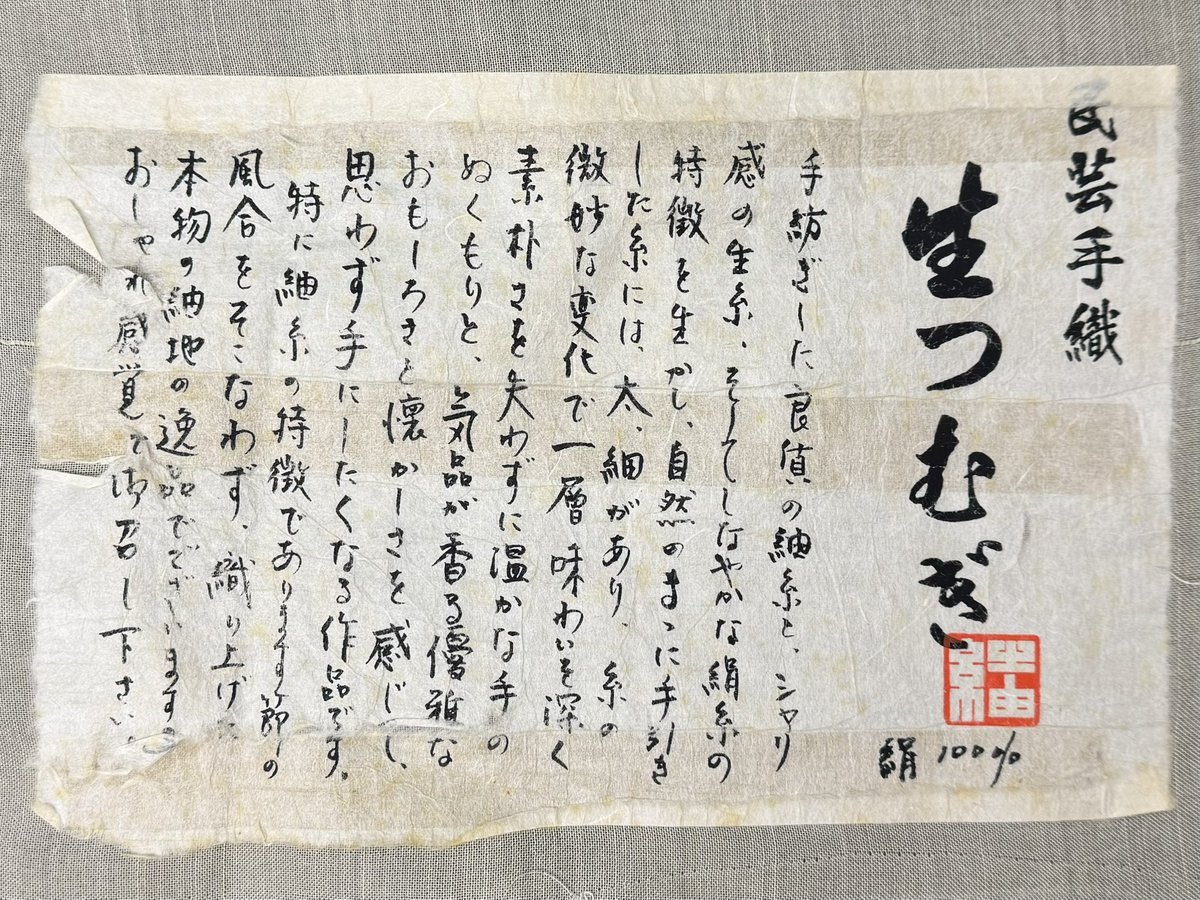 民芸手織
生つむぎ
生紬
絹100%
手紡ぎした良質の紬糸と、シャリ
感の生糸、そしてしなやかな絹糸の
特徴を生かし、自然のまゝに手引き
した糸には、太、細があり、糸の
微妙な変化で一層味わいを深く
素朴さを失わずに温かな手の
ぬくもりと、気品が香る優雅な
おもしろさと懐かしさを感じとし、
思わず手にしたくなる作品です。
特に紬糸の特徴であります節の
風合をそこなわず、織り上げた
本物の紬地の逸品でございますの
おしゃれ感覚で御召し下さい。